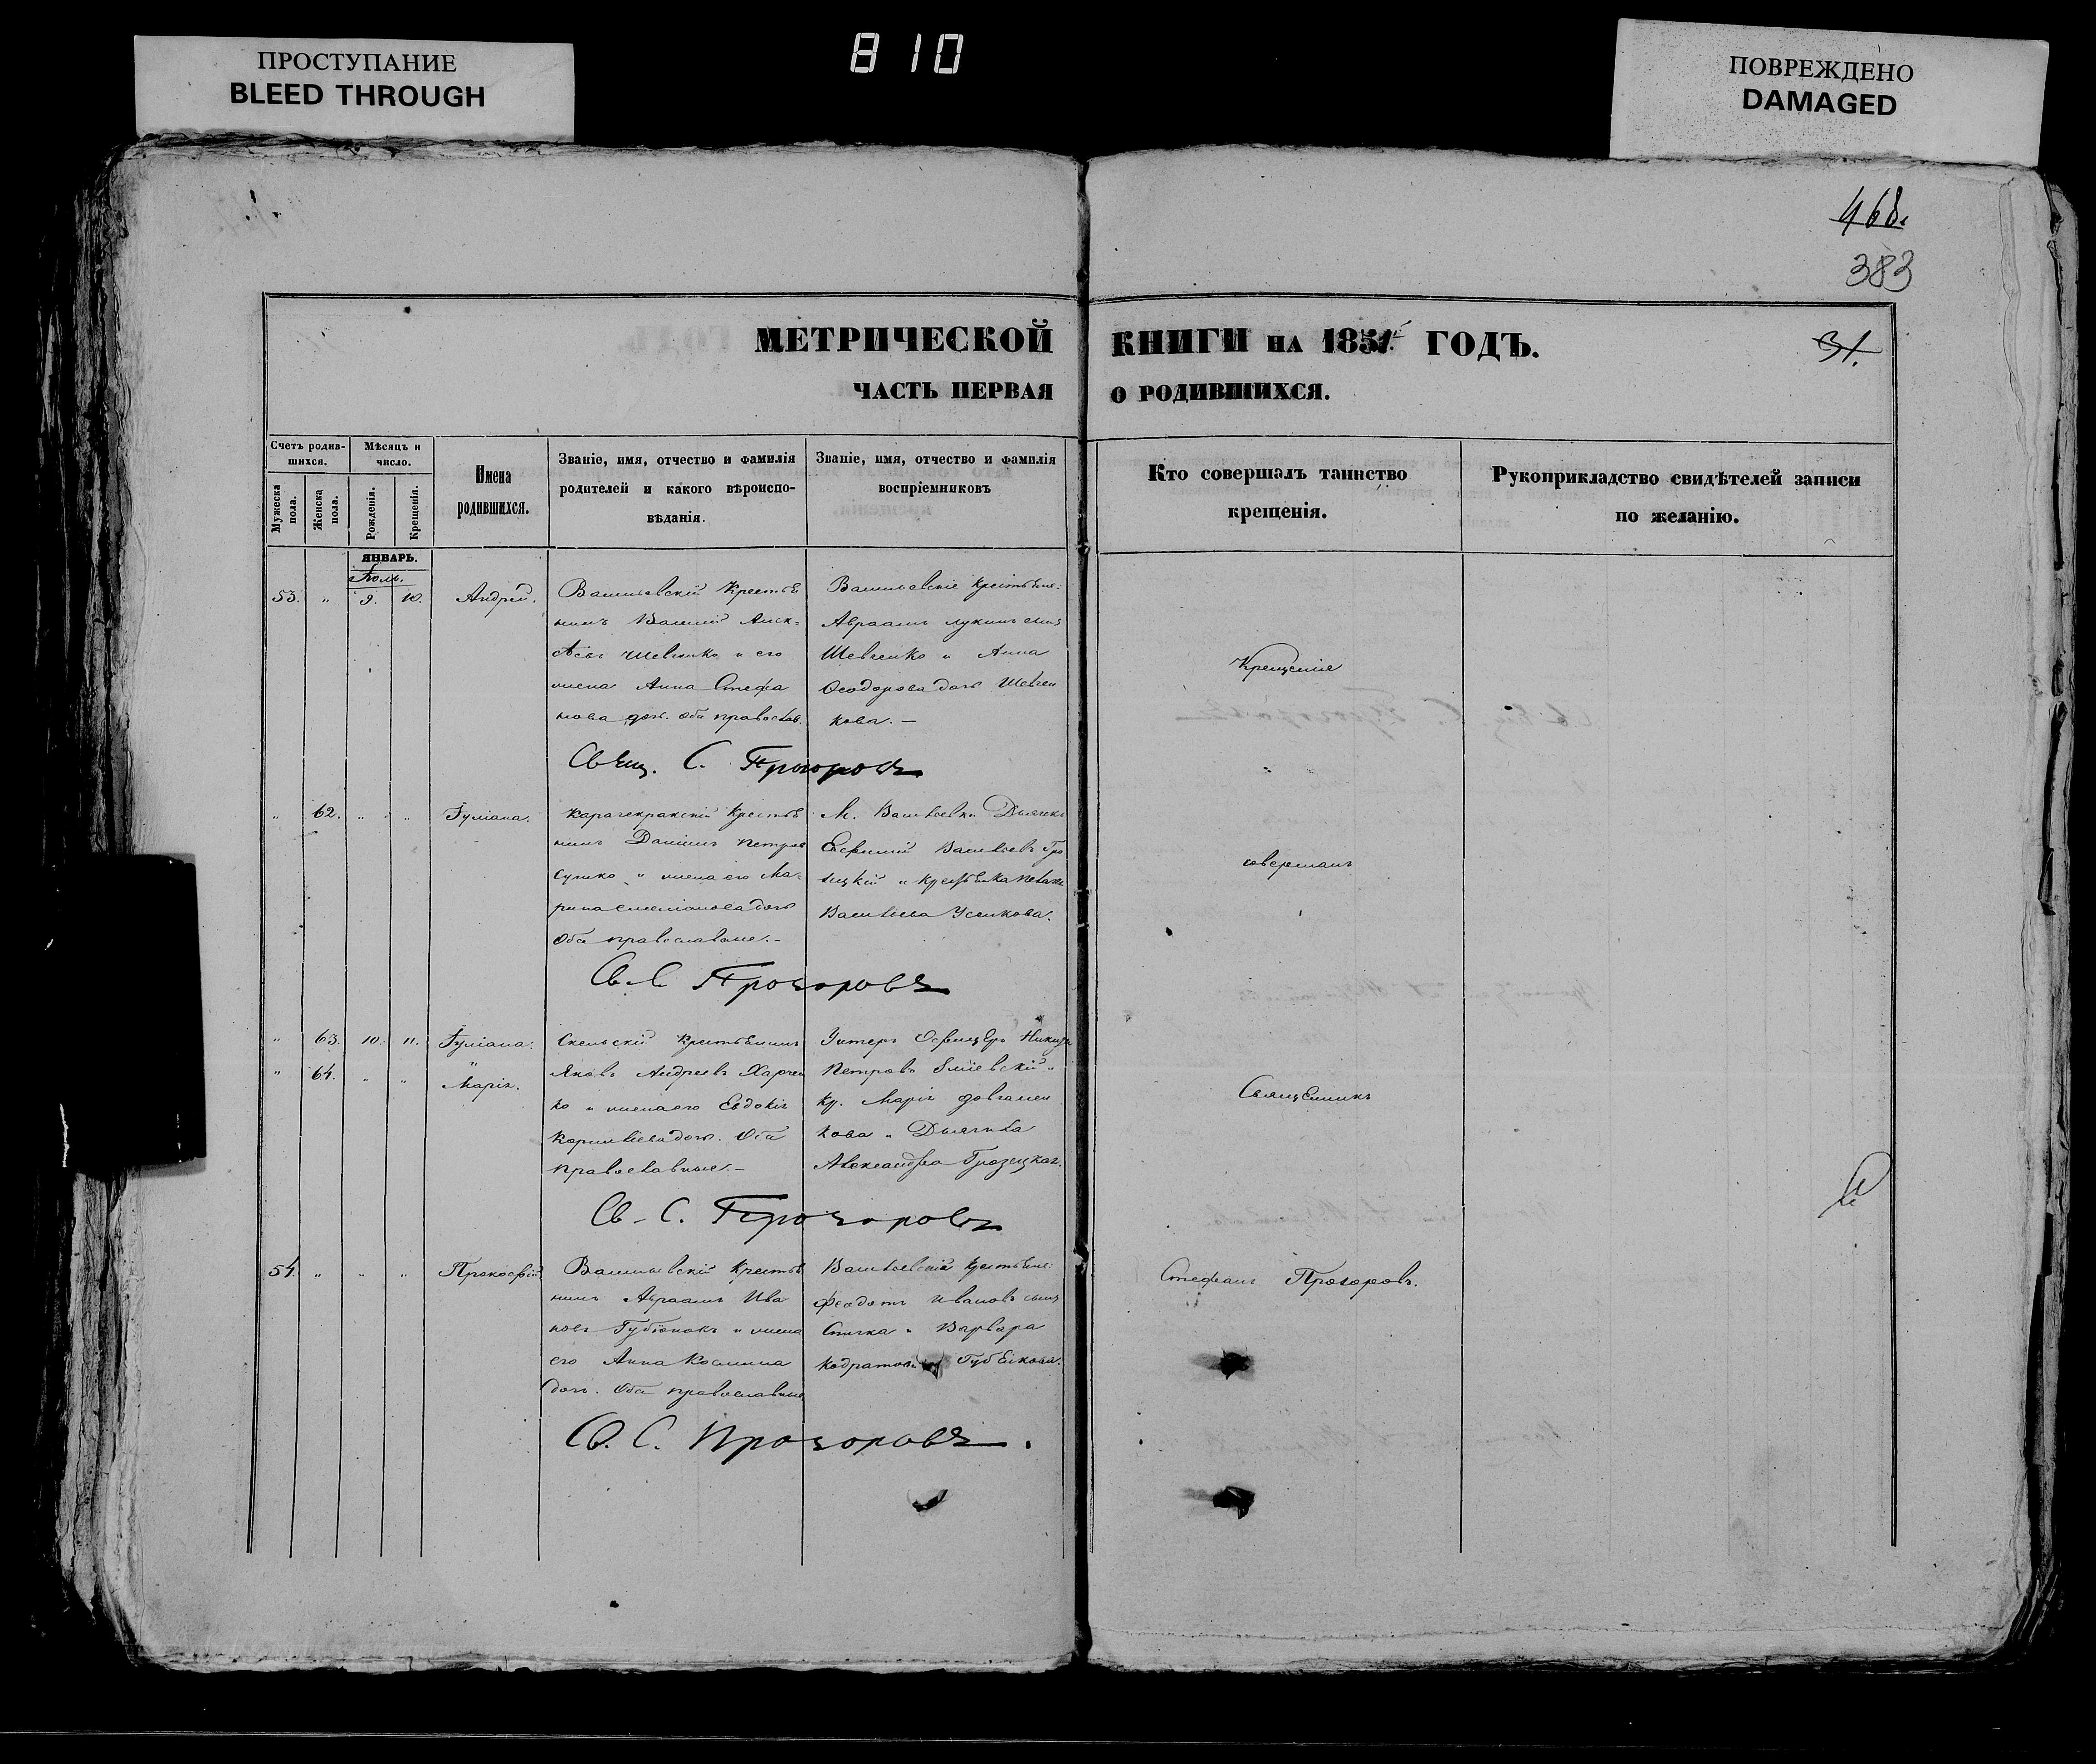 ПРОСТУПАНИЕ
BLEED THROUGH
810
ПОВРЕЖДЕНО
DAMAGED
468.
383
31.
МЕТРИЧЕСКОЙ КНИГИ НА 1851 ГОДЪ.
ЧАСТЬ ПЕРВАЯ О РОДИВШИХСЯ.
Счетъ родив-
шихся.
Мужеска
пола.
Женска
пола.
Мѣсяцъ и
число.
Рожденія.
Крещенія.
Имена
родившихся.
Званіе, имя, отчество и фамилія
родителей и какого вѣроиспо-
вѣданія.
Званіе, имя, отчество и фамилія
воспріемниковъ
Кто совершалъ таинство
крещенія.
Рукоприкладство свидѣтелей записи
по желанію.
ЯНВАРЬ.
53. " 9. 10. Андрей.
Васильевскій Крестья
нинъ Василій Алек-
сѣевъ Шевченко и его
жена Анна Стефа
нова доч. оба православ.
Васильевскіе крестьяне:
Авраамъ Лукинъ сынъ
Шевченко и Анна
Ѳеодорова дочь Шевчен
кова.—
Свящ. С. Прохоровъ
" 62. " " Іуліана.
Карачекракскій Крестья
нинъ Даніилъ Петровъ
и жена его Ма-
рина дочь
Оба православные.-
М. Васильевки Дьячекъ
Евфимій Васильевъ Гро
зецкій и
Васильева Усикова.
Св. С. Прохоровъ
" 63. 10. 11. Іуліана.
" 64. " " Марія.
Скельскій Крестьянинъ
Яковъ Андреевъ Харчен
ко и жена его Евдокія
Корнилиева доч. Оба
православные.-
Унтеръ Офицеръ Никита
Петровъ Зміевскій и
кр. Марія Довгален
кова и Дьячиха
Александра Грозецкая.
Св. С. Прохоровъ
54. " " " Прокофій
Васильевскій Крестья
нинъ Авраамъ Ива
новъ и жена
его Анна Космина
доч. Оба православные
Васильевскіе крестьяне:
Феодотъ Ивановъ сынъ
Спичка и Варвара
Св. С. Прохоровъ.
Крещеніе
совершалъ
Священникъ
Стефанъ Прохоровъ.